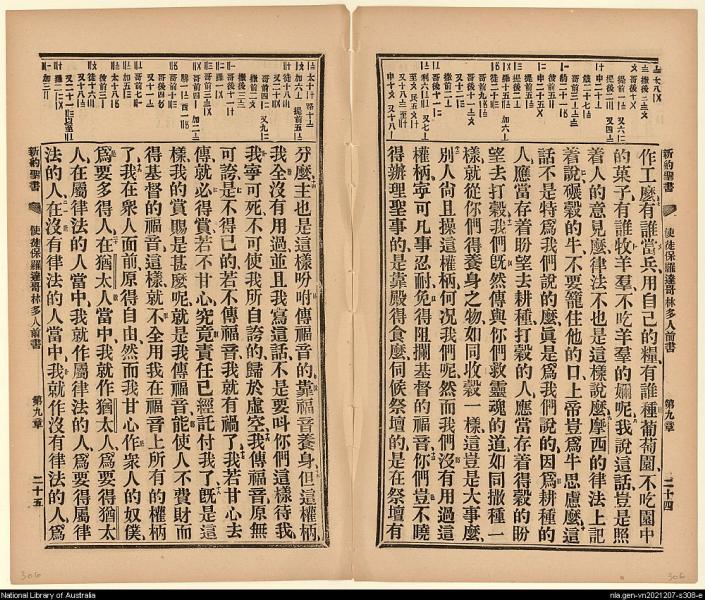 作工麼、有誰當兵、用自己的糧、有誰種葡萄園、不吃園中
的菓子、有誰牧羊羣、不吃羊羣的嬭呢、我說這話、豈是照
着人的意見麼、律法不也是這樣說麼、摩西的律法上記
着說、碾穀的牛、不要籠住他的口、上帝豈爲牛思慮麼、這
話不是特爲我們說的麼、眞是爲我們說的、因爲耕種的
人、應當存着盼望去耕種、打穀的人、應當存着得穀的盼
望去打穀、我們既然傳與你們救靈魂的道、如同撒種一
樣、就從你們得養身之物、如同收穀一樣、這豈是大事麼、
別人尚且操這權柄、何況我們呢、然而我們沒有用過這
權柄、寧可凡事忍耐、免得阻攔基督的福音、你們豈不曉
得辦理聖事的、是靠殿得食麼、伺候祭壇的、是在祭壇有
新約聖書
使徒保羅達哥林多人前書
第九章
二十四
分麼、主也是這樣吩咐、傳福音的靠福音養身、但這權柄
我全沒有用過、並且我寫這話、不是要呌你們這樣待我、
我寧可死、不可使我所自誇的歸於虛空、我傳福音、原無
可誇、是不得已的、若不傳福音、我就有禍了、我若甘心去
傳、就必得賞、若不甘心、究竟責任已經託付我了、既是這
樣、我的賞賜是甚麼呢、就是我傳福音、能使人不費財而
得基督的福音、這樣就不全用我在福音上所有的權柄
了、我在衆人面前、原得自由、然而我甘心作衆人的奴僕、
爲要多得人、在猶太人當中、我就作猶太人、爲要得猶太
人、在屬律法的人當中、我就作屬律法的人、爲要得屬律
法的人、在沒有律法的人當中、我就作沒有律法的人、爲
新約聖書
使徒保羅達哥林多人前書
第九章
二十五
306
306
National Library of Australia
nla.gen-vn2021207-s308-e